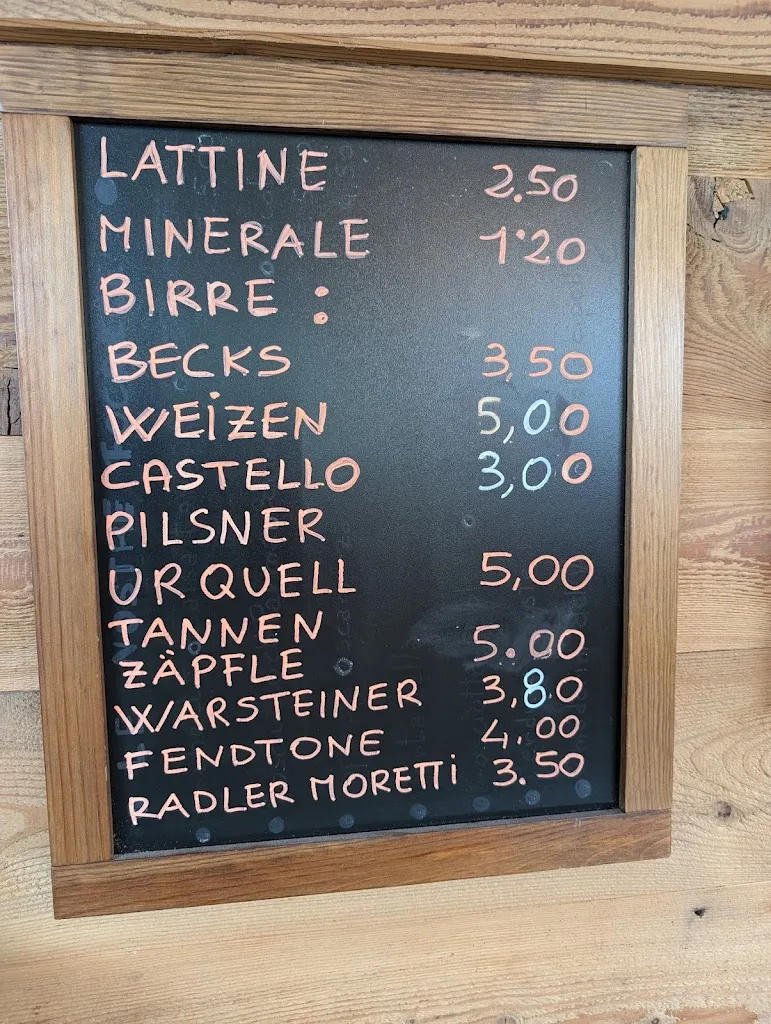 LATTINE 2.50
MINERALE 1.20
BIRRE :
BECKS 3,50
WEIZEN 5,00
CASTELLO 3,00
PILSNER
URQUELL 5,00
TANNEN
ZÄPFLE 5.00
WARSTEINER 3,80
FENDTONE 4.00
RADLER MORETTI 3.50